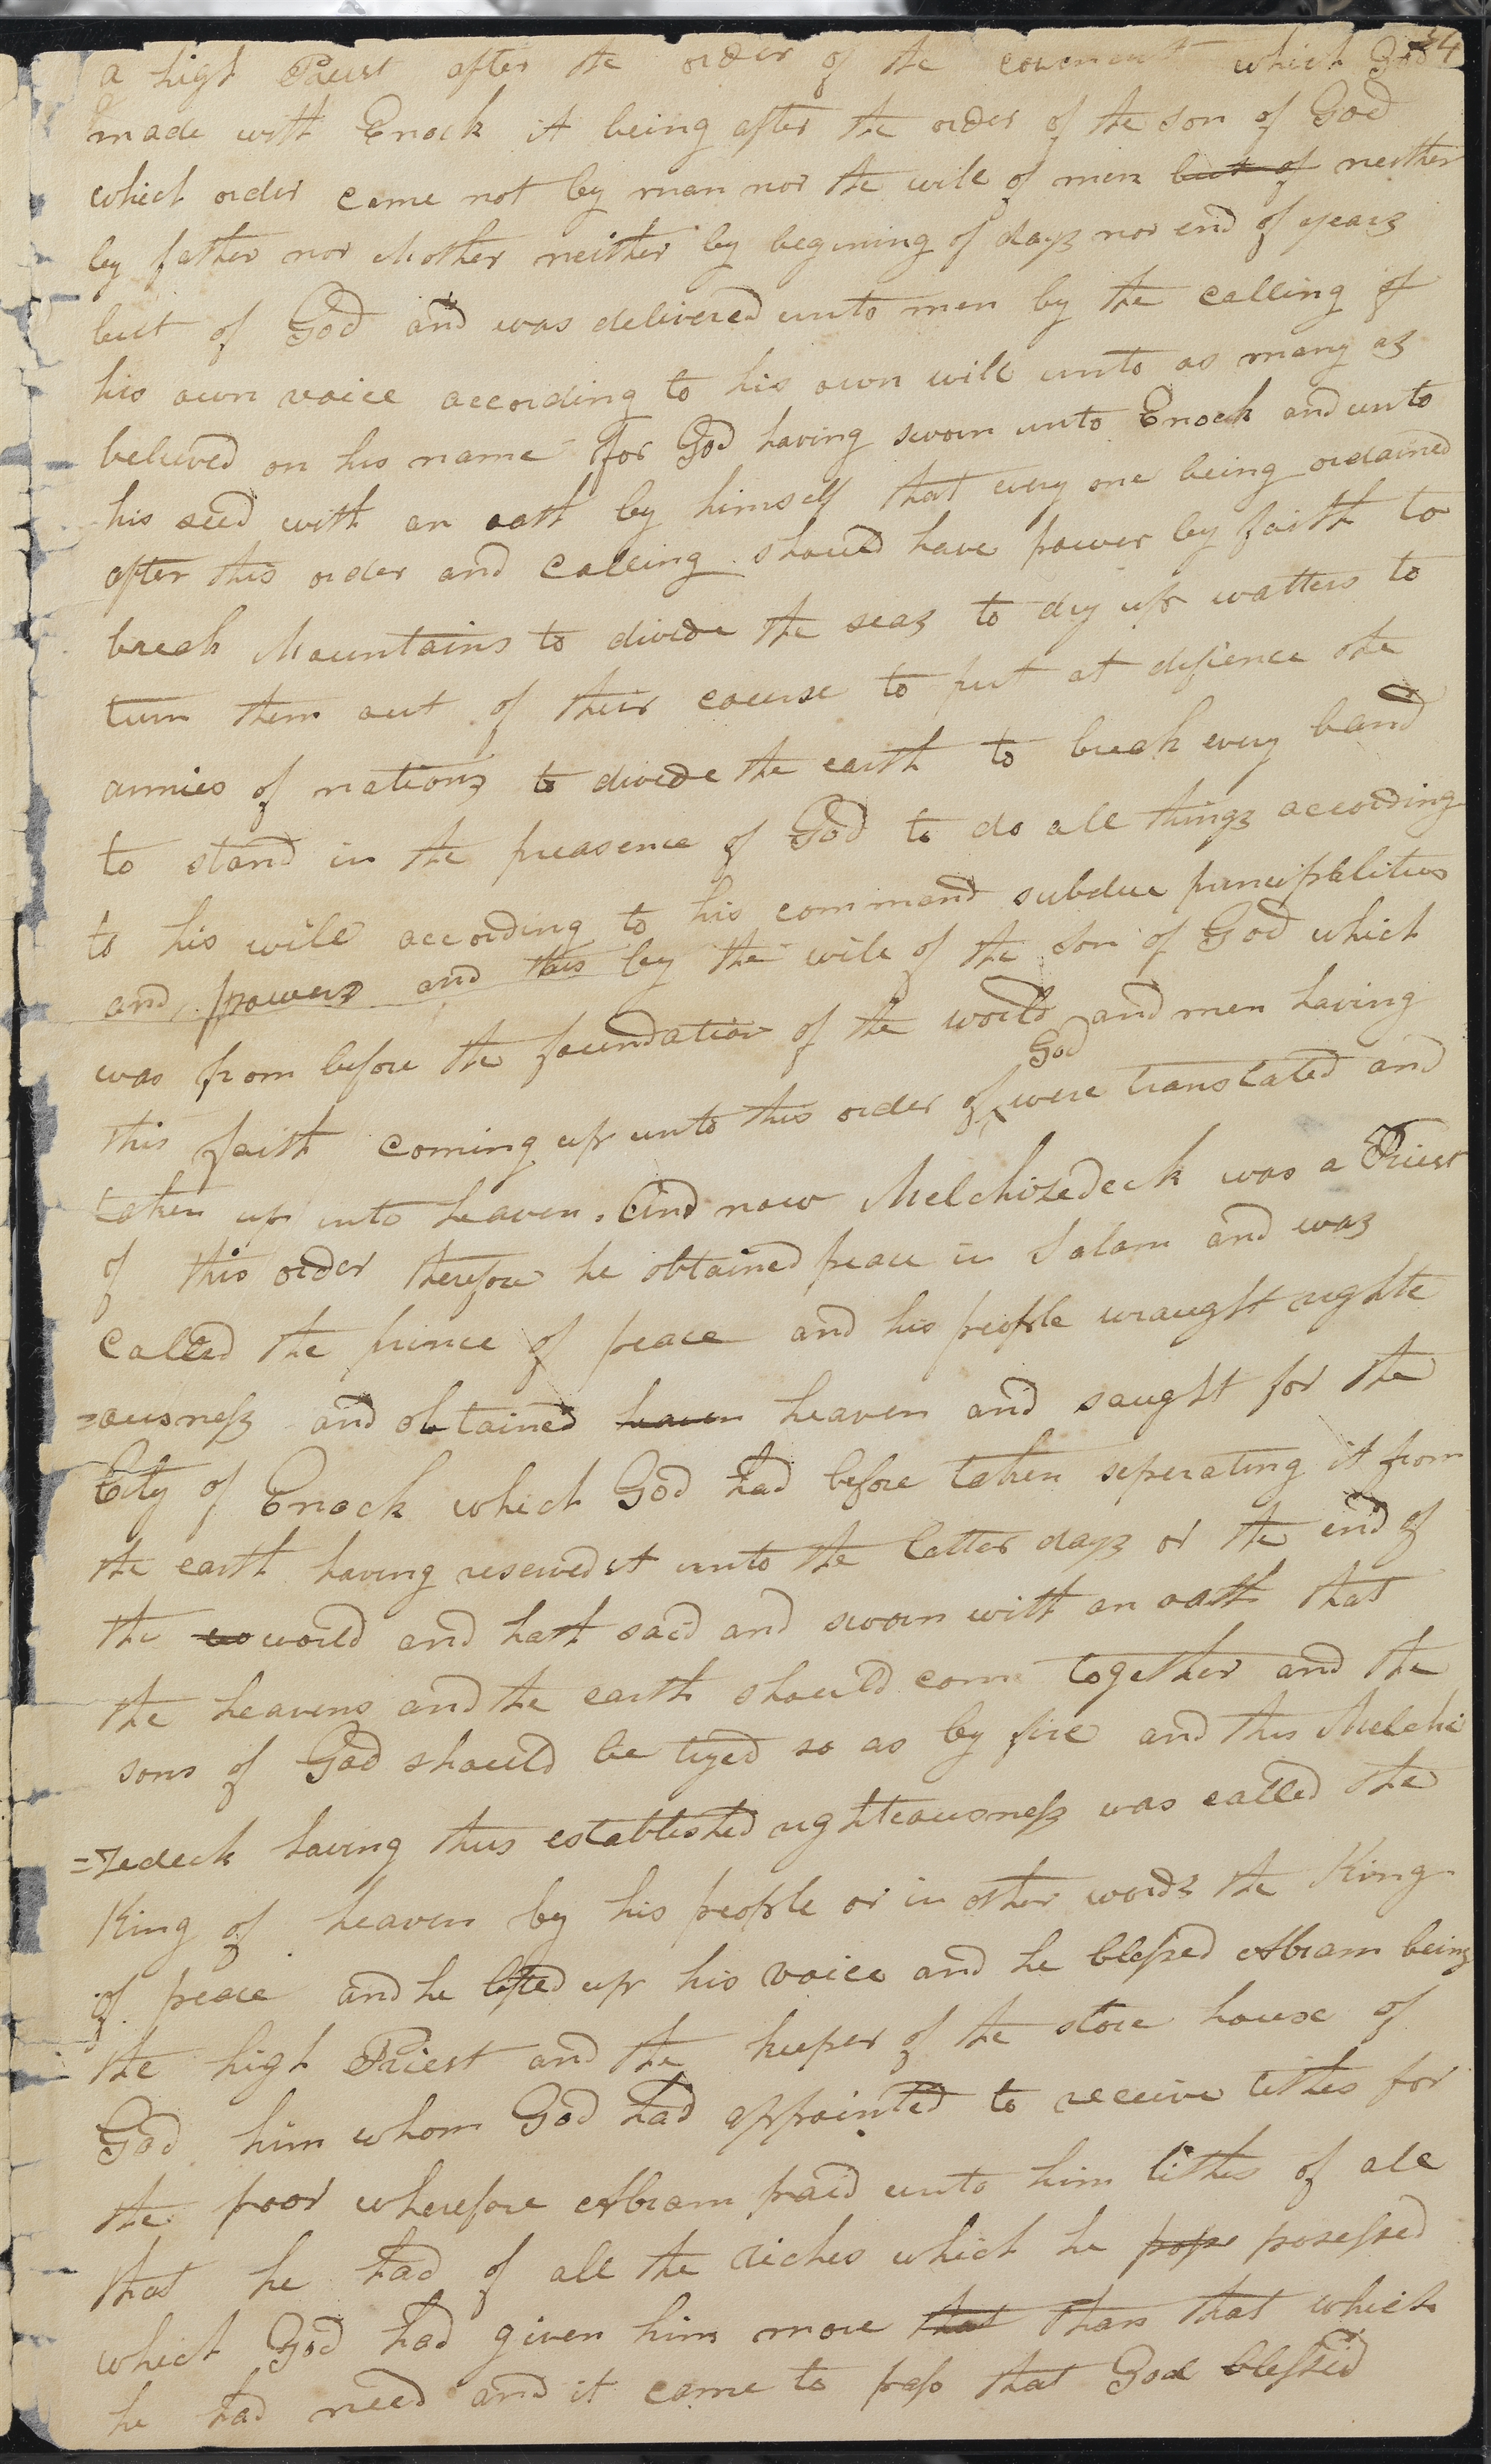 34
a high Priest after the order of the covenant which God
made with Enock it being after the order of the son of God
which order came not by man nor the will of men but of neither
by father nor Mother neither by begining of days nor end of years
but of God and was delivered unto men by the calling of
his own voice according to his own will unto as many as
believed on his name for God having sworn unto Enock and unto
his seed with an oath by himself that every one being ordained
after this order and calling should have power by faith to
break Mountains to divide the seas to dry up watters to
turn them out of their course to put at defience the
armies of nations to divide the earth to break every band
to stand in the preasence of God to do all things according
to his will according to his command subdue principalities
and powers and this by the will of the son of God which
was from before the foundation of the world and men having
God
this faith coming up unto this order of were translated and
taken up into heaven. And now Melchizedeck was a Priest
of this order therefore he obtained peace in Salam and was
called the prince of peace and his people wraught righte
=ousness and obtained heaven heaven and saught for the
City of Enock which God had before taken seperating it from
the earth having reserved it unto the latter days or the end of
the wo world and hath said and sworn with an oath that
the heavens and the earth should com together and the
sons of God should be tryed so as by fire and this Melchi
=zedeck having thus established righteousness was called the
King of heaven by his people or in other words the King
of peace and he lifted up his voice and he blessed Abram being
the high Priest and the keeper of the store house of
God him whom God had appointed to receive tithes for
the poor wherefore Abram paid unto him tithes of all
that he had of all the riches which he poss posessed
which God had given him more that than that which
he had need and it came to pass that God blessed